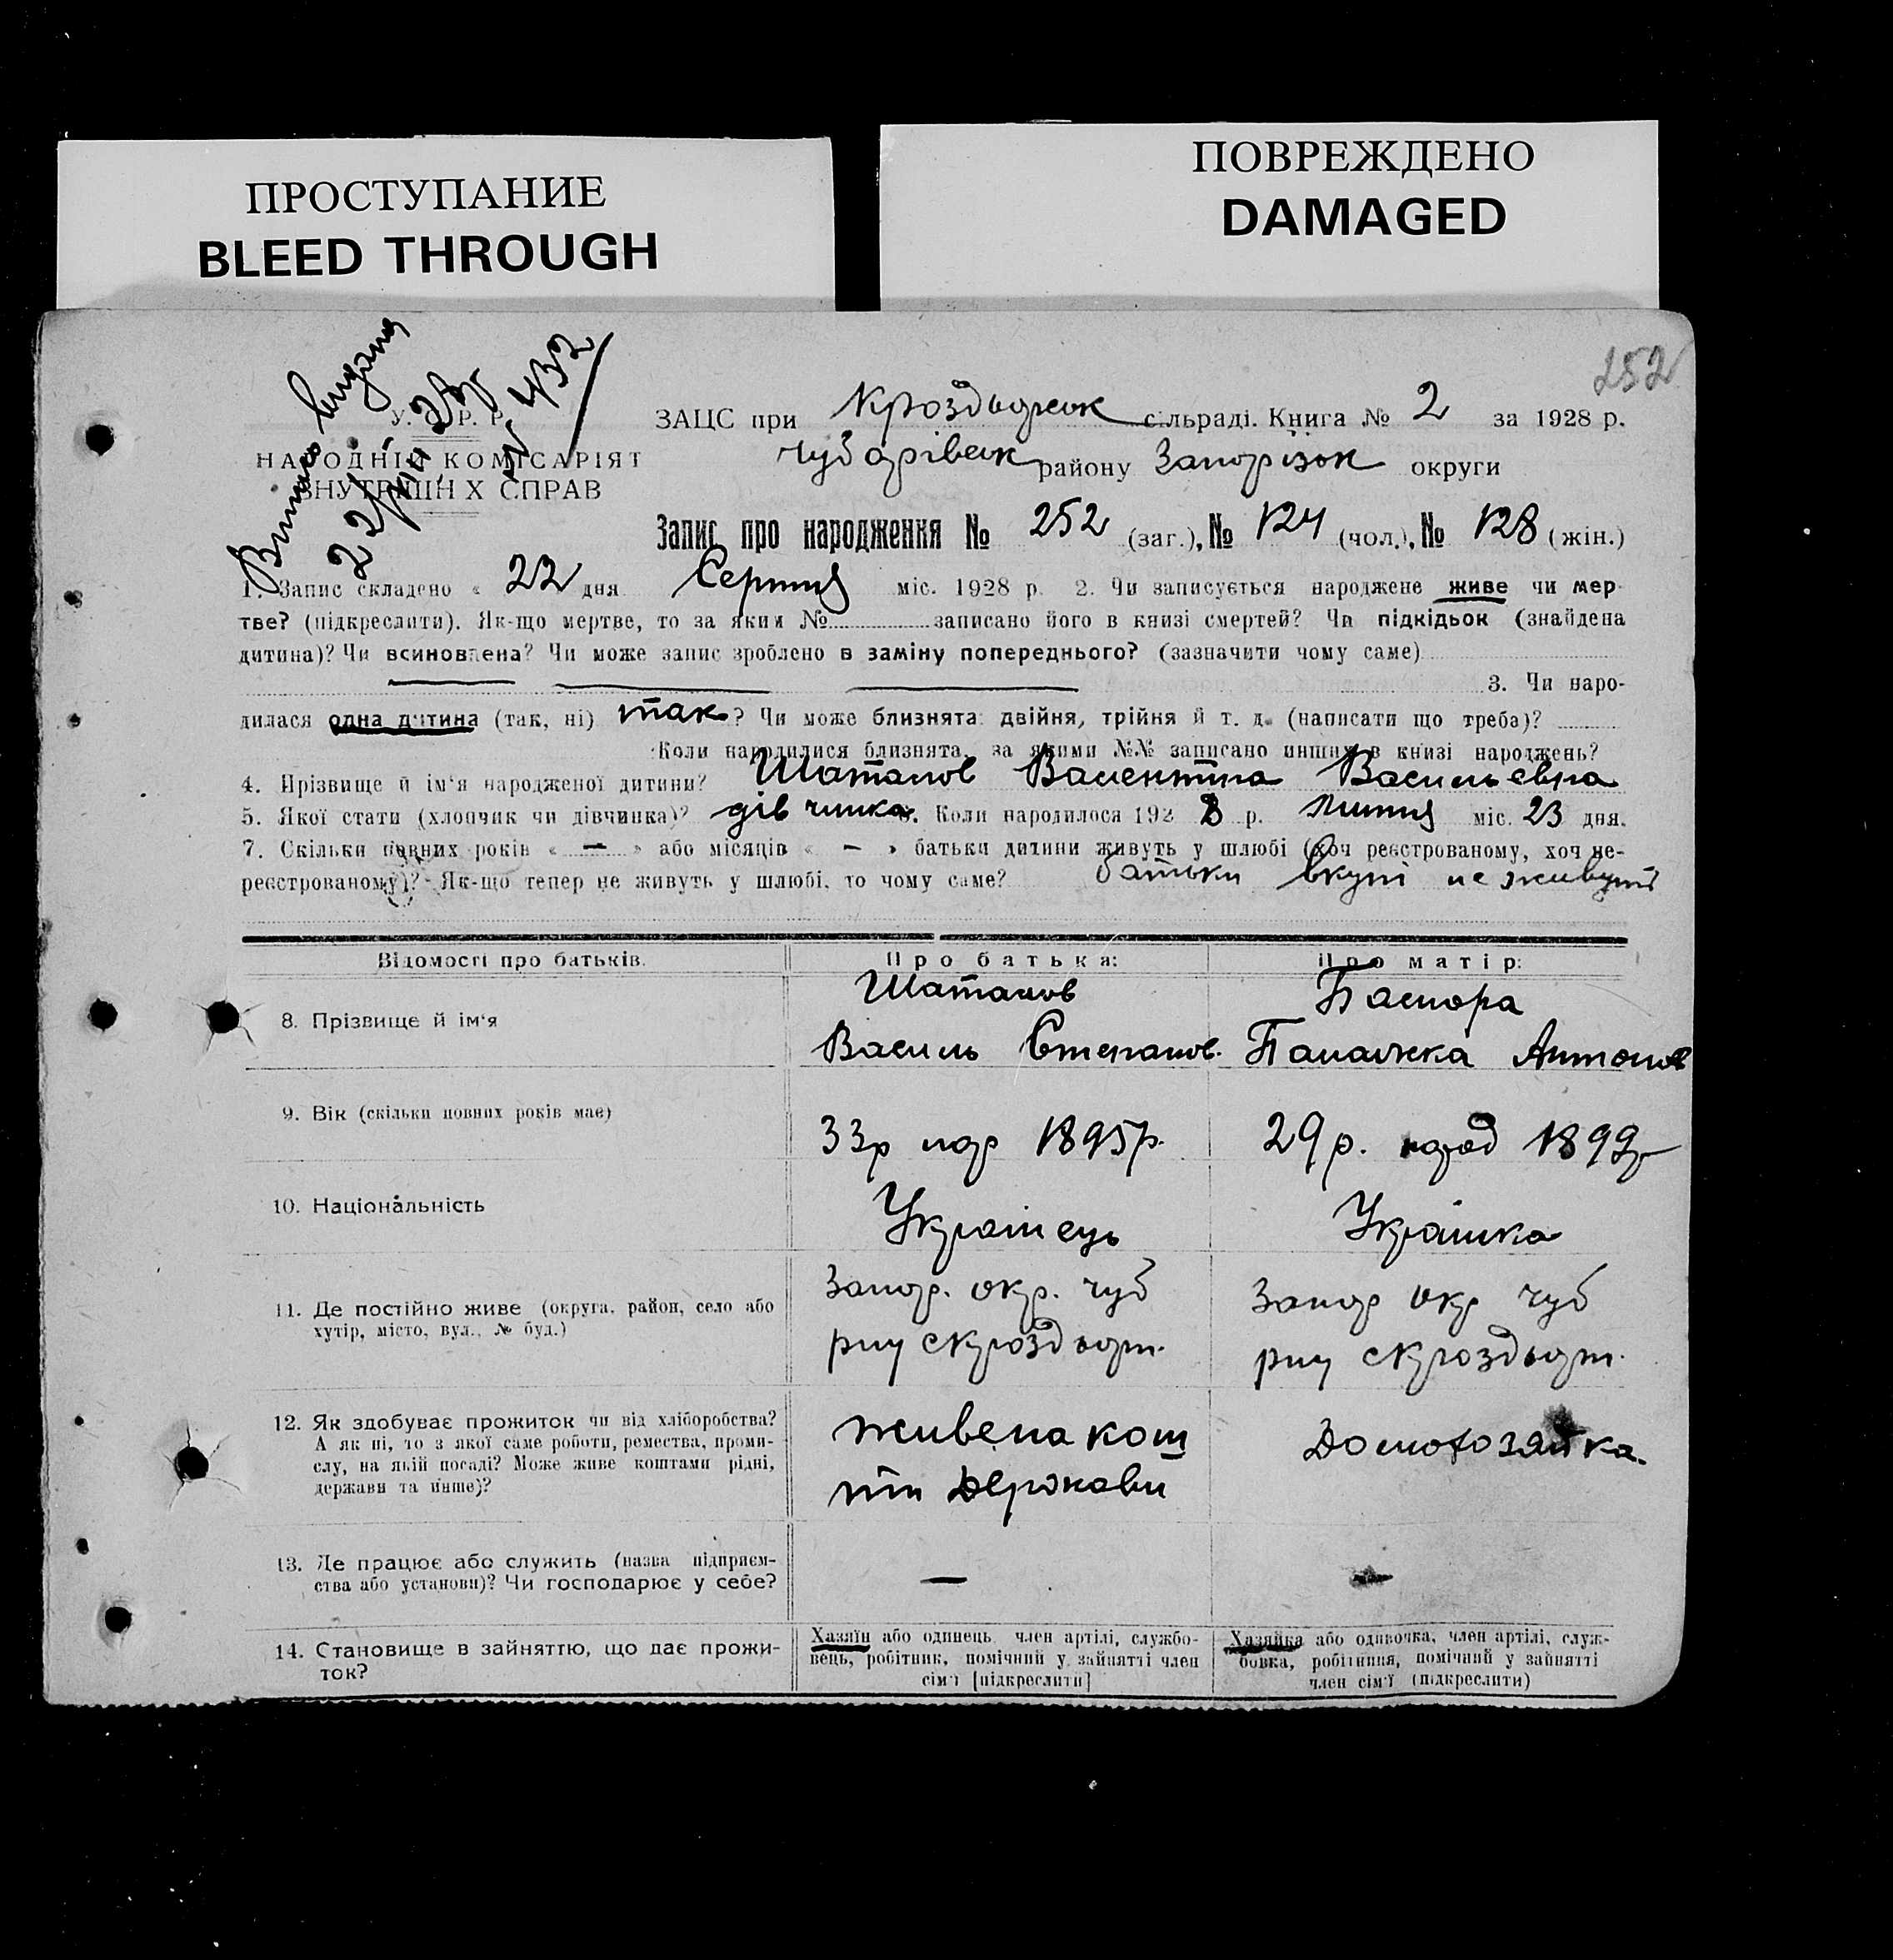 ПРОСТУПАНИЕ
BLEED THROUGH
ПОВРЕЖДЕНО
DAMAGED
252
У. С. Р. Р.
НАРОДНІЙ КОМІСАРІЯТ
ВНУТРІШНІХ СПРАВ
432
ЗАЦС при сільраді. Книга № 2 за 1928 р.
Чубарівськ району Запорізьк округи
Запис про народження № 252 (заг.), № 124 (чол.), № 128 (жін.)
1. Запис складено « 22 дня Серпня міс. 1928 р. 2. Чи записується народжене живе чи мер-
тве? (підкреслити). Як-що мертве, то за яким № записано його в книзі смертей? Чи підкідьок (знайдена
дитина)? Чи всиновлена? Чи може запис зроблено в заміну попереднього? (зазначити чому саме)
3. Чи наро-
дилася одна дитина (так, ні) так? Чи може близнята: двійня, трійня й т. д. (написати що треба)?
Коли народилися близнята, за якими №№ записано инших в книзі народжень?
4. Прізвище й ім'я народженої дитини? Шаталов Валентина Васильевна
5. Якої стати (хлопчик чи дівчинка)? дівчинка. Коли народилося 1928 р. Липня міс. 23 дня.
7. Скільки повних років « — » або місяців « — » батьки дитини живуть у шлюбі (хоч реєстрованому, хоч не-
реєстрованому)? Як-що тепер не живуть у шлюбі, то чому саме? батьки вкупі не живуть
Відомості про батьків.
Про батька:
Про матір:
8. Прізвище й ім'я
Шаталов
Василь Степанов.
Антонов
9. Вік (скільки повних років має)
33р нар 1895р.
29р. народ 1899р
10. Національність
Українець
Українка
11. Де постійно живе (округа, район, село або
хутір, місто, вул., № буд.)
Запор. окр. Чуб
рну
Запор окр Чуб
рну
12. Як здобуває прожиток чи від хліборобства?
А як ні, то з якої саме роботи, ремества, проми-
слу, на якій посаді? Може живе коштами рідні,
держави та инше)?
живе на кош
ти Держави
Домохозяйка.
13. Де працює або служить (назва підприєм-
ства або установи)? Чи господарює у себе?
—
—
14. Становище в зайняттю, що дає прожи-
ток?
Хазяїн або одинець, член артілі, службо-
вець, робітник, помічний у зайнятті член
сім'ї [підкреслити]
Хазяйка або одиночка, член артілі, служ-
бовка, робітниця, помічний у зайнятті
член сім'ї (підкреслити)